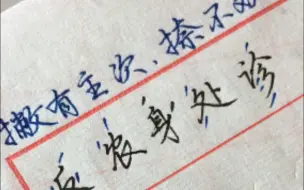 撇有主次、捺不
反农身处诊